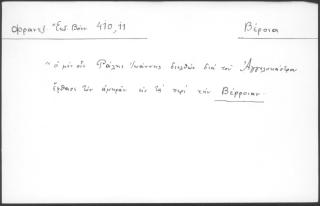 Φραντζ Ἐκδ Βόνν 410,11 Βέροια
" ὁ μὲν οὖν Ῥάλης Ἰωάννης διελθὼν διὰ τοῦ Ἀγγελοκάστρου
ἔφθασε τὸν ἀμηρᾶν εἰς τὰ περὶ τὴν Βέρροιαν.